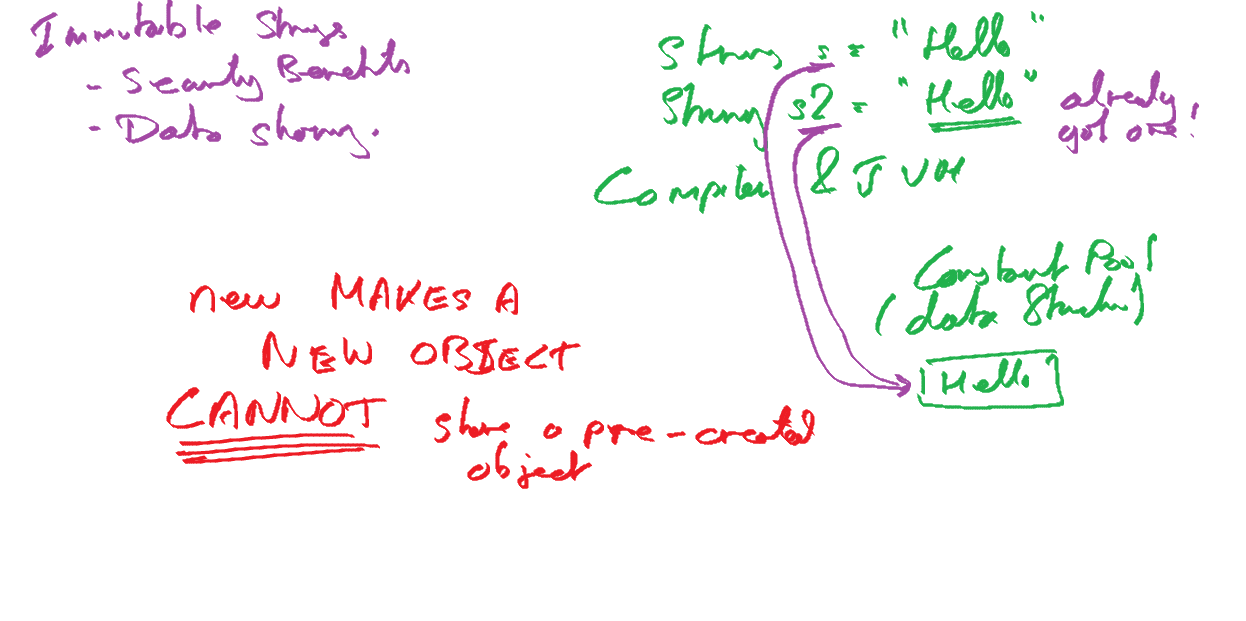 Immutable Strings
- Security Benefits
- Data sharing.
String s = "Hello"
String s2 = "Hello" already
got one!
Compiler & JVM
Constant Pool
(data structure)
Hello
new MAKES A
NEW OBJECT
CANNOT share a pre-created
object